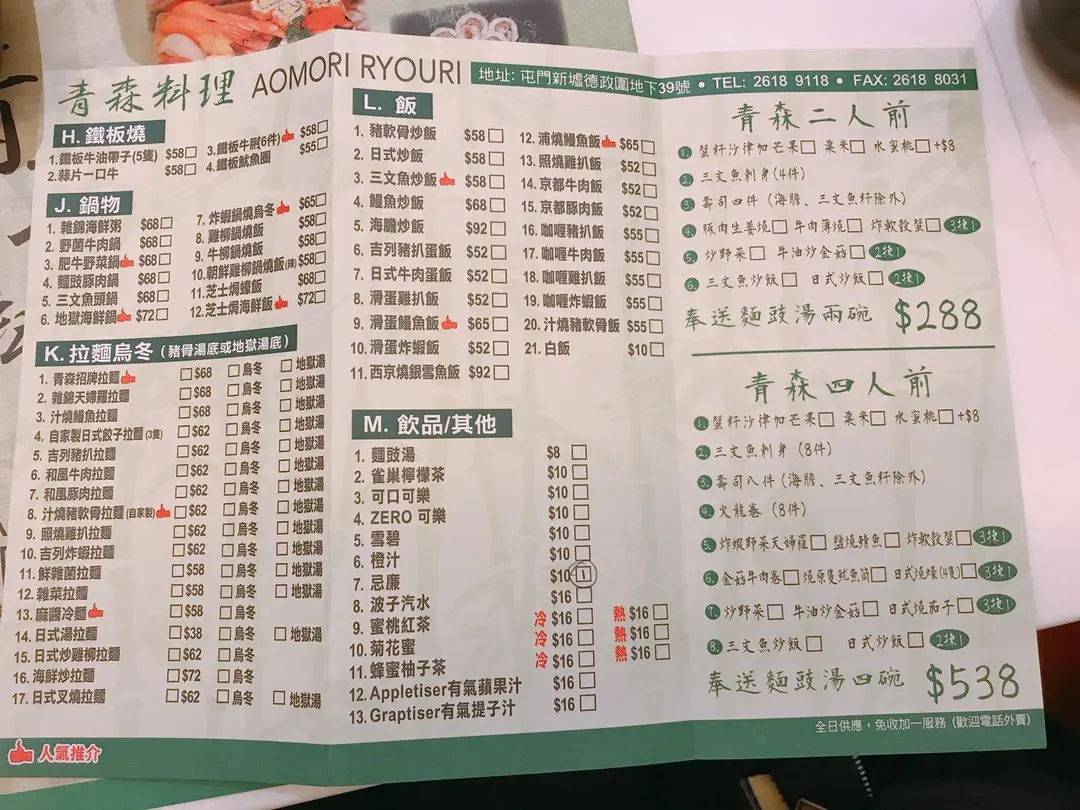 青森料理 AOMORI RYOURI
地址: 屯門新墟德政圍地下39號 • TEL: 2618 9118 • FAX: 2618 8031
H. 鐵板燒
1.鐵板牛油帶子(5隻) $58
2.蒜片一口牛 $58
3.鐵板牛脷(6件) $58
4.鐵板魷魚圈 $55
J. 鍋物
1. 雜錦海鮮粥 $68
2. 野菌牛肉鍋 $68
3. 肥牛野菜鍋 $68
4. 麵豉豚肉鍋 $68
5. 三文魚頭鍋 $68
6. 地獄海鮮鍋 $72
7. 炸蝦鍋燒烏冬 $65
8. 雞柳鍋燒飯 $58
9. 牛柳鍋燒飯 $58
10.朝鮮雞柳鍋燒飯(辣) $58
11.芝士焗蠔飯 $68
12.芝士焗海鮮飯 $72
K. 拉麵烏冬 (豬骨湯底或地獄湯底)
1. 青森招牌拉麵 $68 烏冬 地獄湯
2. 雜錦天婦羅拉麵 $68 烏冬 地獄湯
3. 汁燒鰻魚拉麵 $68 烏冬 地獄湯
4. 自家製日式餃子拉麵 (3隻) $62 烏冬 地獄湯
5. 吉列豬扒拉麵 $62 烏冬 地獄湯
6. 和風牛肉拉麵 $62 烏冬 地獄湯
7. 和風豚肉拉麵 $62 烏冬 地獄湯
8. 汁燒豬軟骨拉麵 (自家製) $62 烏冬 地獄湯
9. 照燒雞扒拉麵 $62 烏冬 地獄湯
10. 吉列炸蝦拉麵 $62 烏冬 地獄湯
11. 鮮雜菌拉麵 $58 烏冬 地獄湯
12. 雜菜拉麵 $58 烏冬 地獄湯
13. 麻醬冷麵 $58 烏冬
14. 日式湯拉麵 $38 烏冬 地獄湯
15. 日式炒雞柳拉麵 $62 烏冬
16. 海鮮炒拉麵 $72 烏冬
17. 日式叉燒拉麵 $62 烏冬 地獄湯
人氣推介
L. 飯
1. 豬軟骨炒飯 $58
2. 日式炒飯 $58
3. 三文魚炒飯 $58
4. 鰻魚炒飯 $68
5. 海膽炒飯 $92
6. 吉列豬扒蛋飯 $52
7. 日式牛肉蛋飯 $52
8. 滑蛋雞扒飯 $52
9. 滑蛋鰻魚飯 $65
10. 滑蛋炸蝦飯 $52
11. 西京燒銀雪魚飯 $92
12. 浦燒鰻魚飯 $65
13. 照燒雞扒飯 $52
14. 京都牛肉飯 $52
15. 京都豚肉飯 $52
16. 咖喱豬扒飯 $55
17. 咖喱牛肉飯 $55
18. 咖喱雞扒飯 $55
19. 咖喱炸蝦飯 $55
20. 汁燒豬軟骨飯 $55
21. 白飯 $10
M. 飲品/其他
1. 麵豉湯 $8
2. 雀巢檸檬茶 $10
3. 可口可樂 $10
4. ZERO 可樂 $10
5. 雪碧 $10
6. 橙汁 $10
7. 忌廉 $10 1
8. 波子汽水 $16
9. 蜜桃紅茶 冷 $16 熱 $16
10. 菊花蜜 冷 $16 熱 $16
11. 蜂蜜柚子茶 冷 $16 熱 $16
12. Appletiser有氣蘋果汁 $16
13. Graptiser有氣提子汁 $16
青森二人前
1. 蟹籽沙律加芒果 粟米 水蜜桃 +$8
2. 三文魚刺身(4件)
3. 壽司四件 (海膽、三文魚籽除外)
4. 豚肉生姜燒 牛肉薄燒 炸軟殼蟹 3揀1
5. 炒野菜 牛油炒金菇 2揀1
6. 三文魚炒飯 日式炒飯 2揀1
奉送麵豉湯兩碗 $288
青森四人前
1. 蟹籽沙律加芒果 粟米 水蜜桃 +$8
2. 三文魚刺身 (8件)
3. 壽司八件 (海膽、三文魚籽除外)
4. 火龍卷 (8件)
5. 炸蝦野菜天婦羅 鹽燒鯖魚 炸軟殼蟹 3揀1
6. 金菇牛肉卷 燒原隻魷魚筒 日式燒蠔(4隻) 3揀1
7. 炒野菜 牛油炒金菇 日式燒茄子 3揀1
8. 三文魚炒飯 日式炒飯 2揀1
奉送麵豉湯四碗 $538
全日供應，免收加一服務 (歡迎電話外賣)